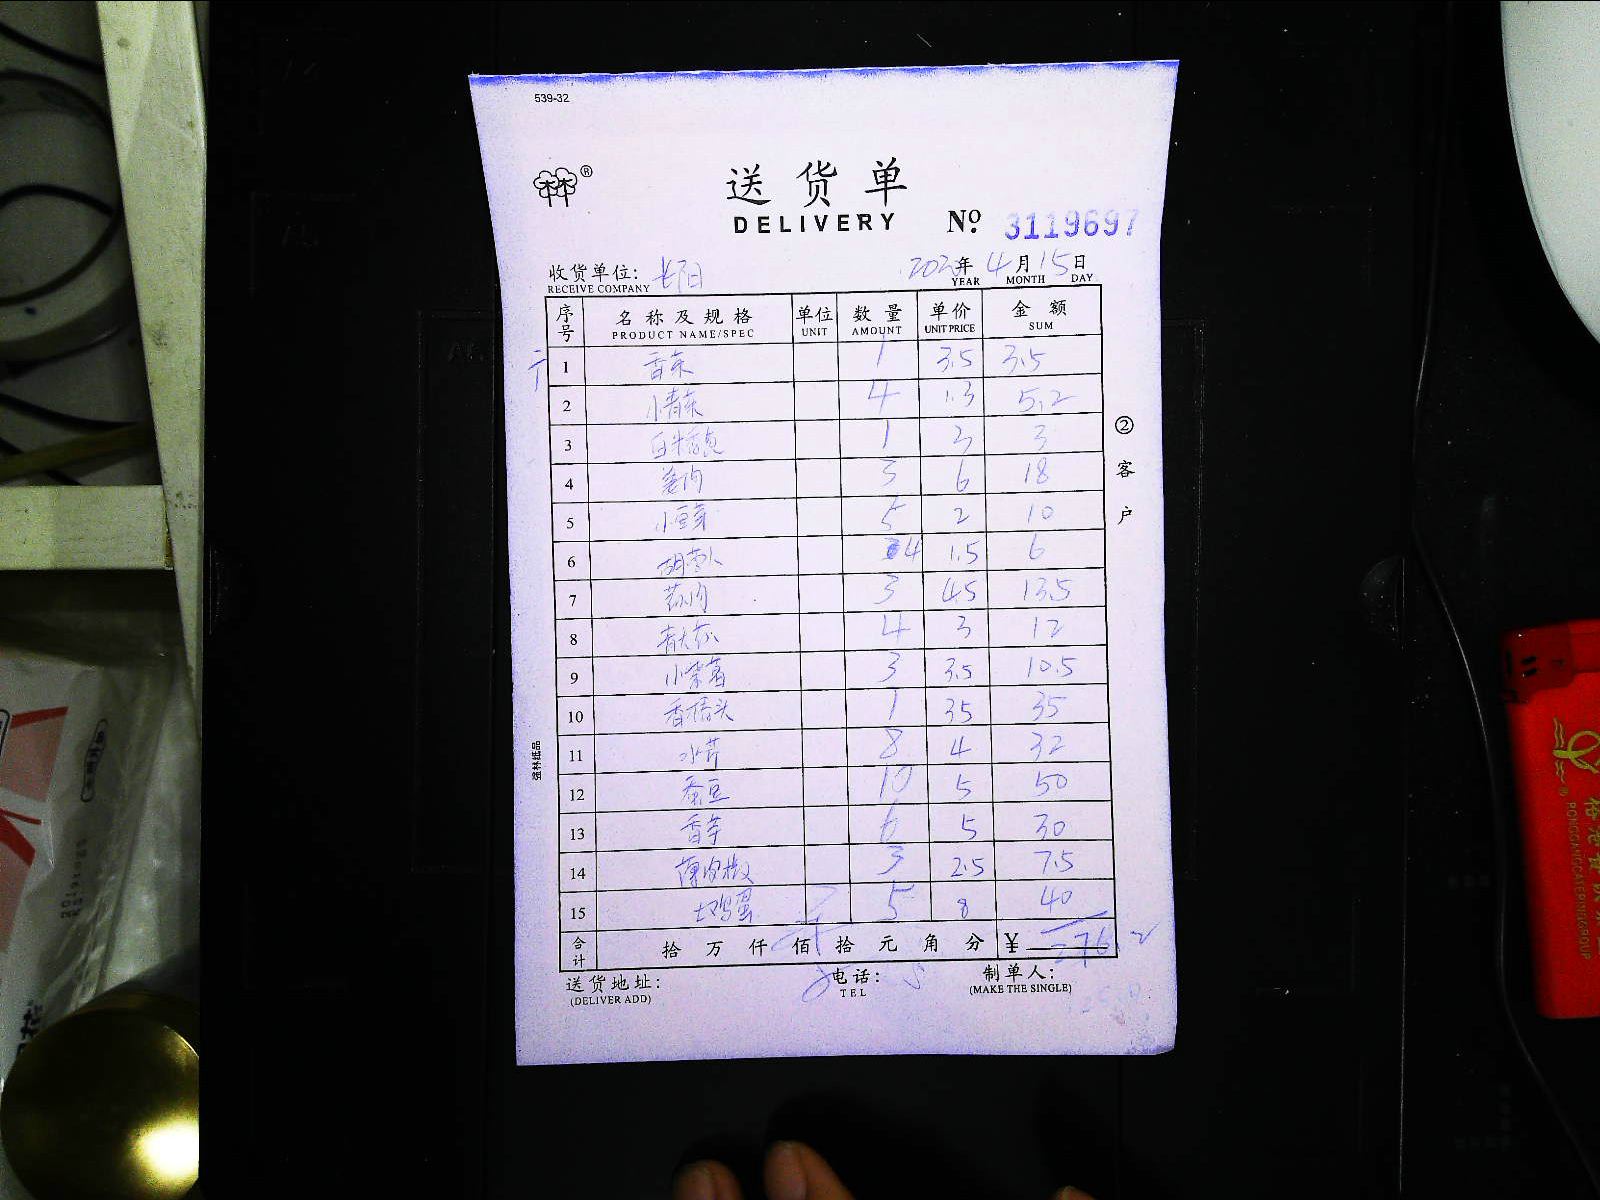 539-32
送货单
DELIVERY № 3119697
收货单位: 长阳 202 年 4 月 15 日
RECEIVE COMPANY YEAR MONTH DAY
序号 名称及规格 单位 数量 单价 金额
PRODUCT NAME/SPEC UNIT AMOUNT UNIT PRICE SUM
1 香菜 1 3.5 3.5
2 小青菜 4 1.3 5.2
3 1 3 3
4 姜肉 3 6 18
5 小豆芽 5 2 10
6 胡萝卜 4 1.5 6
7 蒜肉 3 4.5 13.5
8 4 3 12
9 小紫薯 3 3.5 10.5
10 1 35 35
11 水芹 8 4 32
12 蚕豆 10 5 50
13 香芋 6 5 30
14 薄皮椒 3 2.5 7.5
15 土鸡蛋 5 8 40
合计 拾 万 仟 佰 拾 元 角 分 ¥ 276.2
送货地址: 电话: 制单人:
(DELIVER ADD) TEL (MAKE THE SINGLE)
②客户
强林纸品